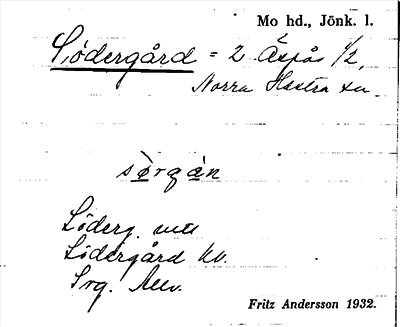 Mo hd., Jönk. l.
Södergård = 2 Äspås 1/2,
Norra Hestra sn.
sörgån
Söderg.
Södergård kv.
Srg.
Fritz Andersson 1932.